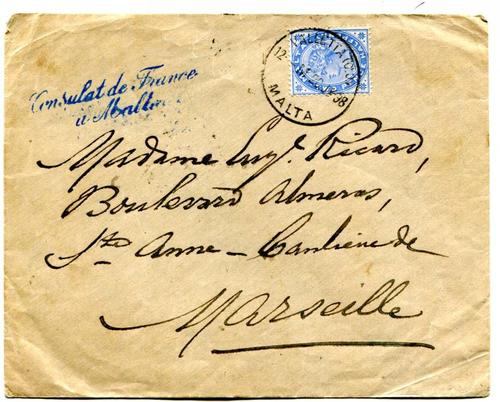 Consulat de France
à Malte
VALLETTA
MALTA
98
Madame Eug. Ricard,
Boulevard Almeras,
Ste Anne - Banlieue de
Marseille